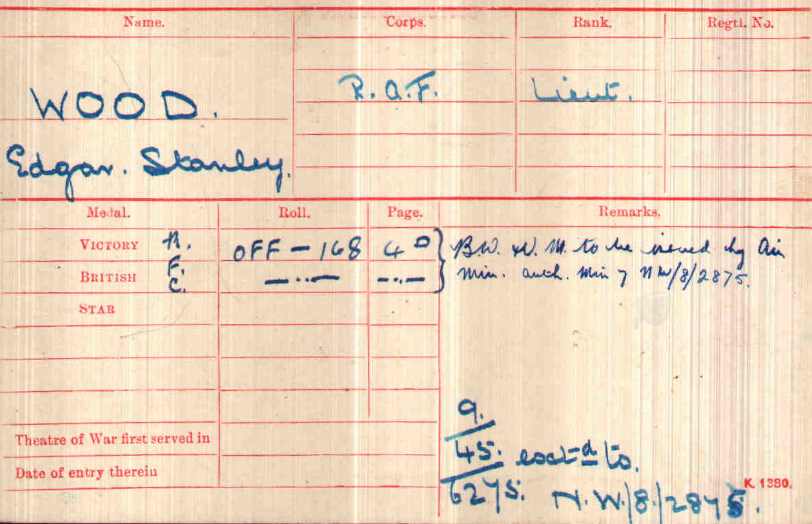 Name. Corps. Rank. Regtl. No.
WOOD. R.A.F. Lieut.
Edgar. Stanley.
Medal. Roll. Page. Remarks.
VICTORY OFF - 168 40 B.W. &V. M. to be issued by Air
BRITISH F. —··— —·— Min. auth. Min 7 NW/8/2875.
C.
STAR
9.
Theatre of War first served in
45. ext-d to.
Date of entry therein
6275. N.W/8/2875.
K. 1380.